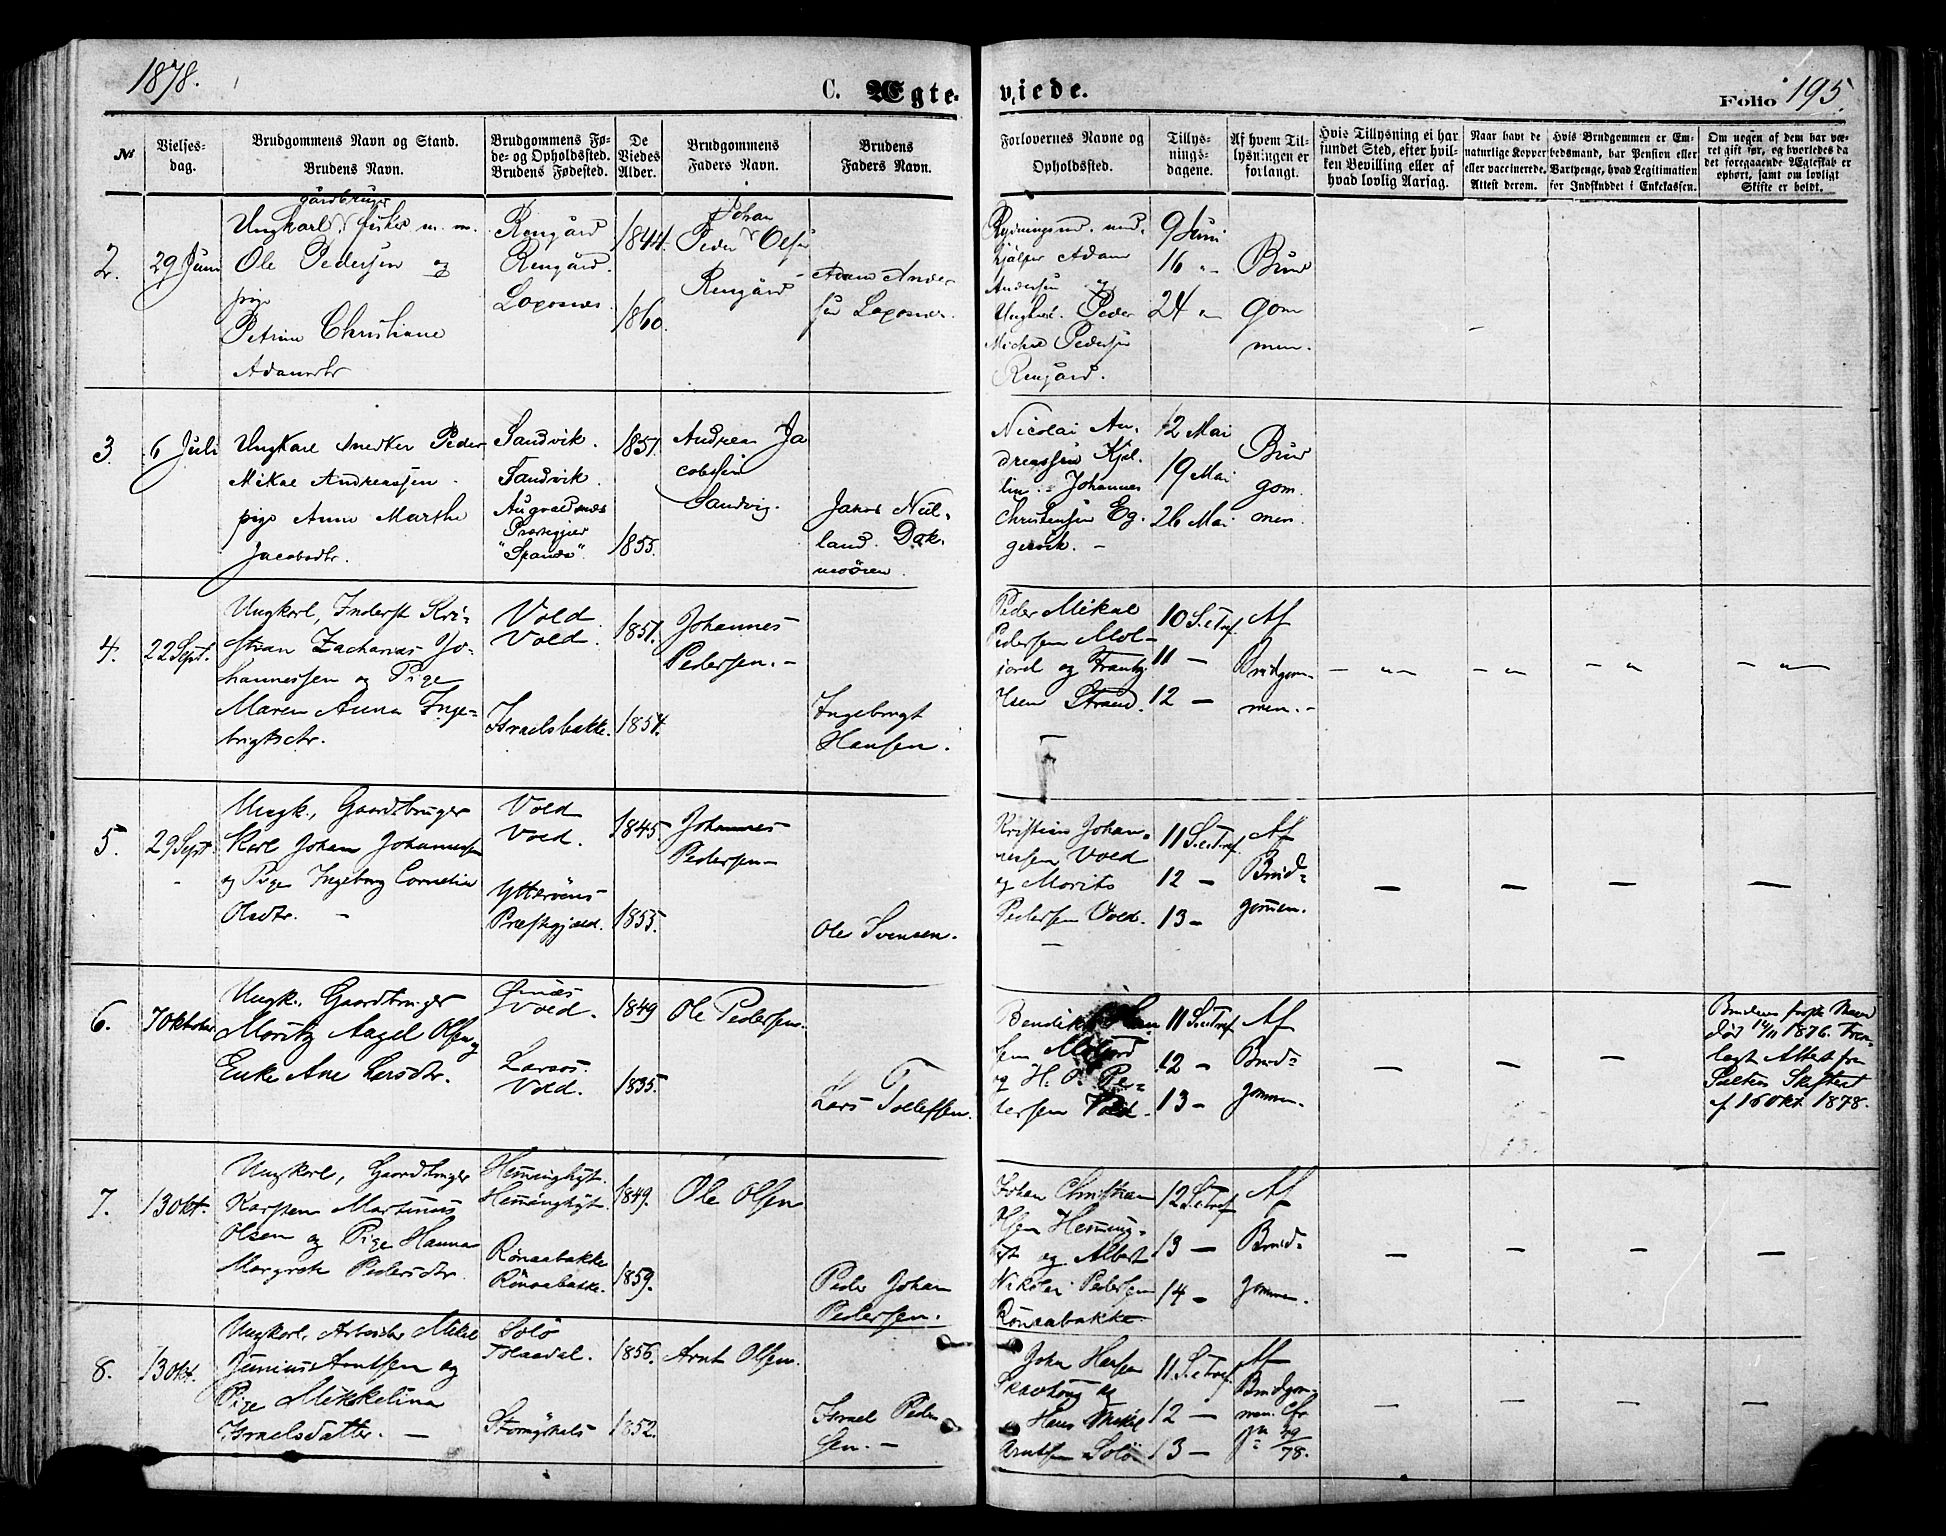 1878.
C. Ægte-
viede.
Folio 195.
№
Vielses-
dag.
Brudgommens Navn og Stand.
Brudens Navn.
Brudgommens Fø-
de- og Opholdssted.
Brudens Fødested.
De
Viedes
Alder.
Brudgommens
Faders Navn.
Brudens
Faders Navn.
Forlovernes Navne og
Opholdssted.
Tillys-
nings-
dagene.
Af hvem Til-
lysningen er
forlangt.
Hvis Tillysning ei har
fundet Sted, efter hvil-
ken Bevilling eller af
hvad lovlig Aarsag.
Naar havt de
naturlige Kopper
eller vaccinerede.
Attest derom.
Hvis Brudgommen er Em-
bedsmand, har Pension eller
Vartpenge, hvad Legitimation
for Indskuddet i Enkekassen.
Om nogen af dem har væ-
ret gift før, og hvorledes da
det foregaaende Ægteskab er
ophørt, samt om lovligt
Skifte er holdt.
2.
29 Juni
gårdbruger
Ungkarl, fisker m. m.
Ole Pedersen og
pige
Petrine Christiane
Adamsdtr
Rengård
Rengård.
1844.
1860.
Johan
Peder Olsen
Rengård
Adam Ander-
sen
Adam
Andersen og
Ungkarl Peder
Michal Pedersen
Rengård.
9 Juni
16 "
24 "
Brud
gom
men.
3.
6 Juli
Ungkarl Peder
Mikal Andreassen
pige Anne Marthe
Jacobsdtr.
Sandvik.
Sandvik.
Augvaldsnæs
Præstegjeld
1851.
1855.
Andreas Ja
cobsen
Sandvig.
Nicolai An-
dreassen Kjel-
Johannes
Christensen Eg-
gesvik. –
12 Mai
19 Mai
26 Mai
Brud
gom.
men.
4.
22 Sept.
Ungkarl, Inderst Kri-
stian Zacharias Jo-
hannessen og Pige
Maren Anna Inge-
brigtsdtr.
Vold
Vold.
Israelsbakke.
1851.
1854.
Johannes
Pedersen. –
Ingebrigt
Hansen.
Peder Mikal
Pedersen Mol-
jord og Frantz
Olsen Strand.
10 S. e. Tref.
11 –
12 –
Af
Brudgom-
men. –
– " –
– "
– "
– " –
5.
29 Sept.
–
Ungk., Gaardbruger
Karl Johan Johannessen
og Pige Ingeborg Cornelia
Olsdtr. –
Vold
Vold.
Ytterøens
Præstegjæld.
1845.
1853.
Johannes
Pedersen –
Ole Svensen.
Kristian Johan-
nessen Vold
og Morits
Pedersen Vold.
–
11 S. e. Tref.
12 –
13 –
Af
Brud-
gommen.
–
–
–
–
6.
7 Oktober
Ungk., Gaardbruger
Moritz Aagel Olsen og
Enke Ane Larsdtr.
Øinæs
Vold.
Larsos.
Vold.
1849
1835.
Ole Pedersen.
Lars Tollefsen.
Bendikt Han
sen Moljord
og H. P. Pe-
dersen Vold.
11 S. e. Tref.
12 –
13 –
Af
Brud-
gommen.
–
–
–
Brudens første Mand
død 14/11 1876. Frem-
lagt Attest fra
Saltens Skifteret
af 16 Okt. 1878.
7.
13 Okt.
Ungkarl, Gaardbruger
Karsten Martinus
Olsen og Pige Hanna
Margrete Pedersdtr.
Hemminghyt.
Hemminghyt.
Rønaabakke
Rønaabakke.
1849.
1859.
Ole Olsen
Peder Johan
Pedersen.
Johan Christian
Olsen Hemming-
hyt og Albert
Nikolai Pedersen
Rønaabakke
12 S. e. Tref.
13 –
14 –
Af
Brud-
gommen.
–
–
–
–
8.
13 Okt.
Ungkarl, Arbeider Mikal
Junius Arntsen og
Pige Mikkelina
Israelsdatter. –
Solø
Tollaadal.
1856.
1852.
Arnt Olsen.
Israel Peder
sen. –
John Hansen
Skavhoug og
Hans Mikal
Arntsen Solø
11 S. e. Tref.
12 –
13 –
Af
Brudgom-
men. Cfr
–
–
–
–